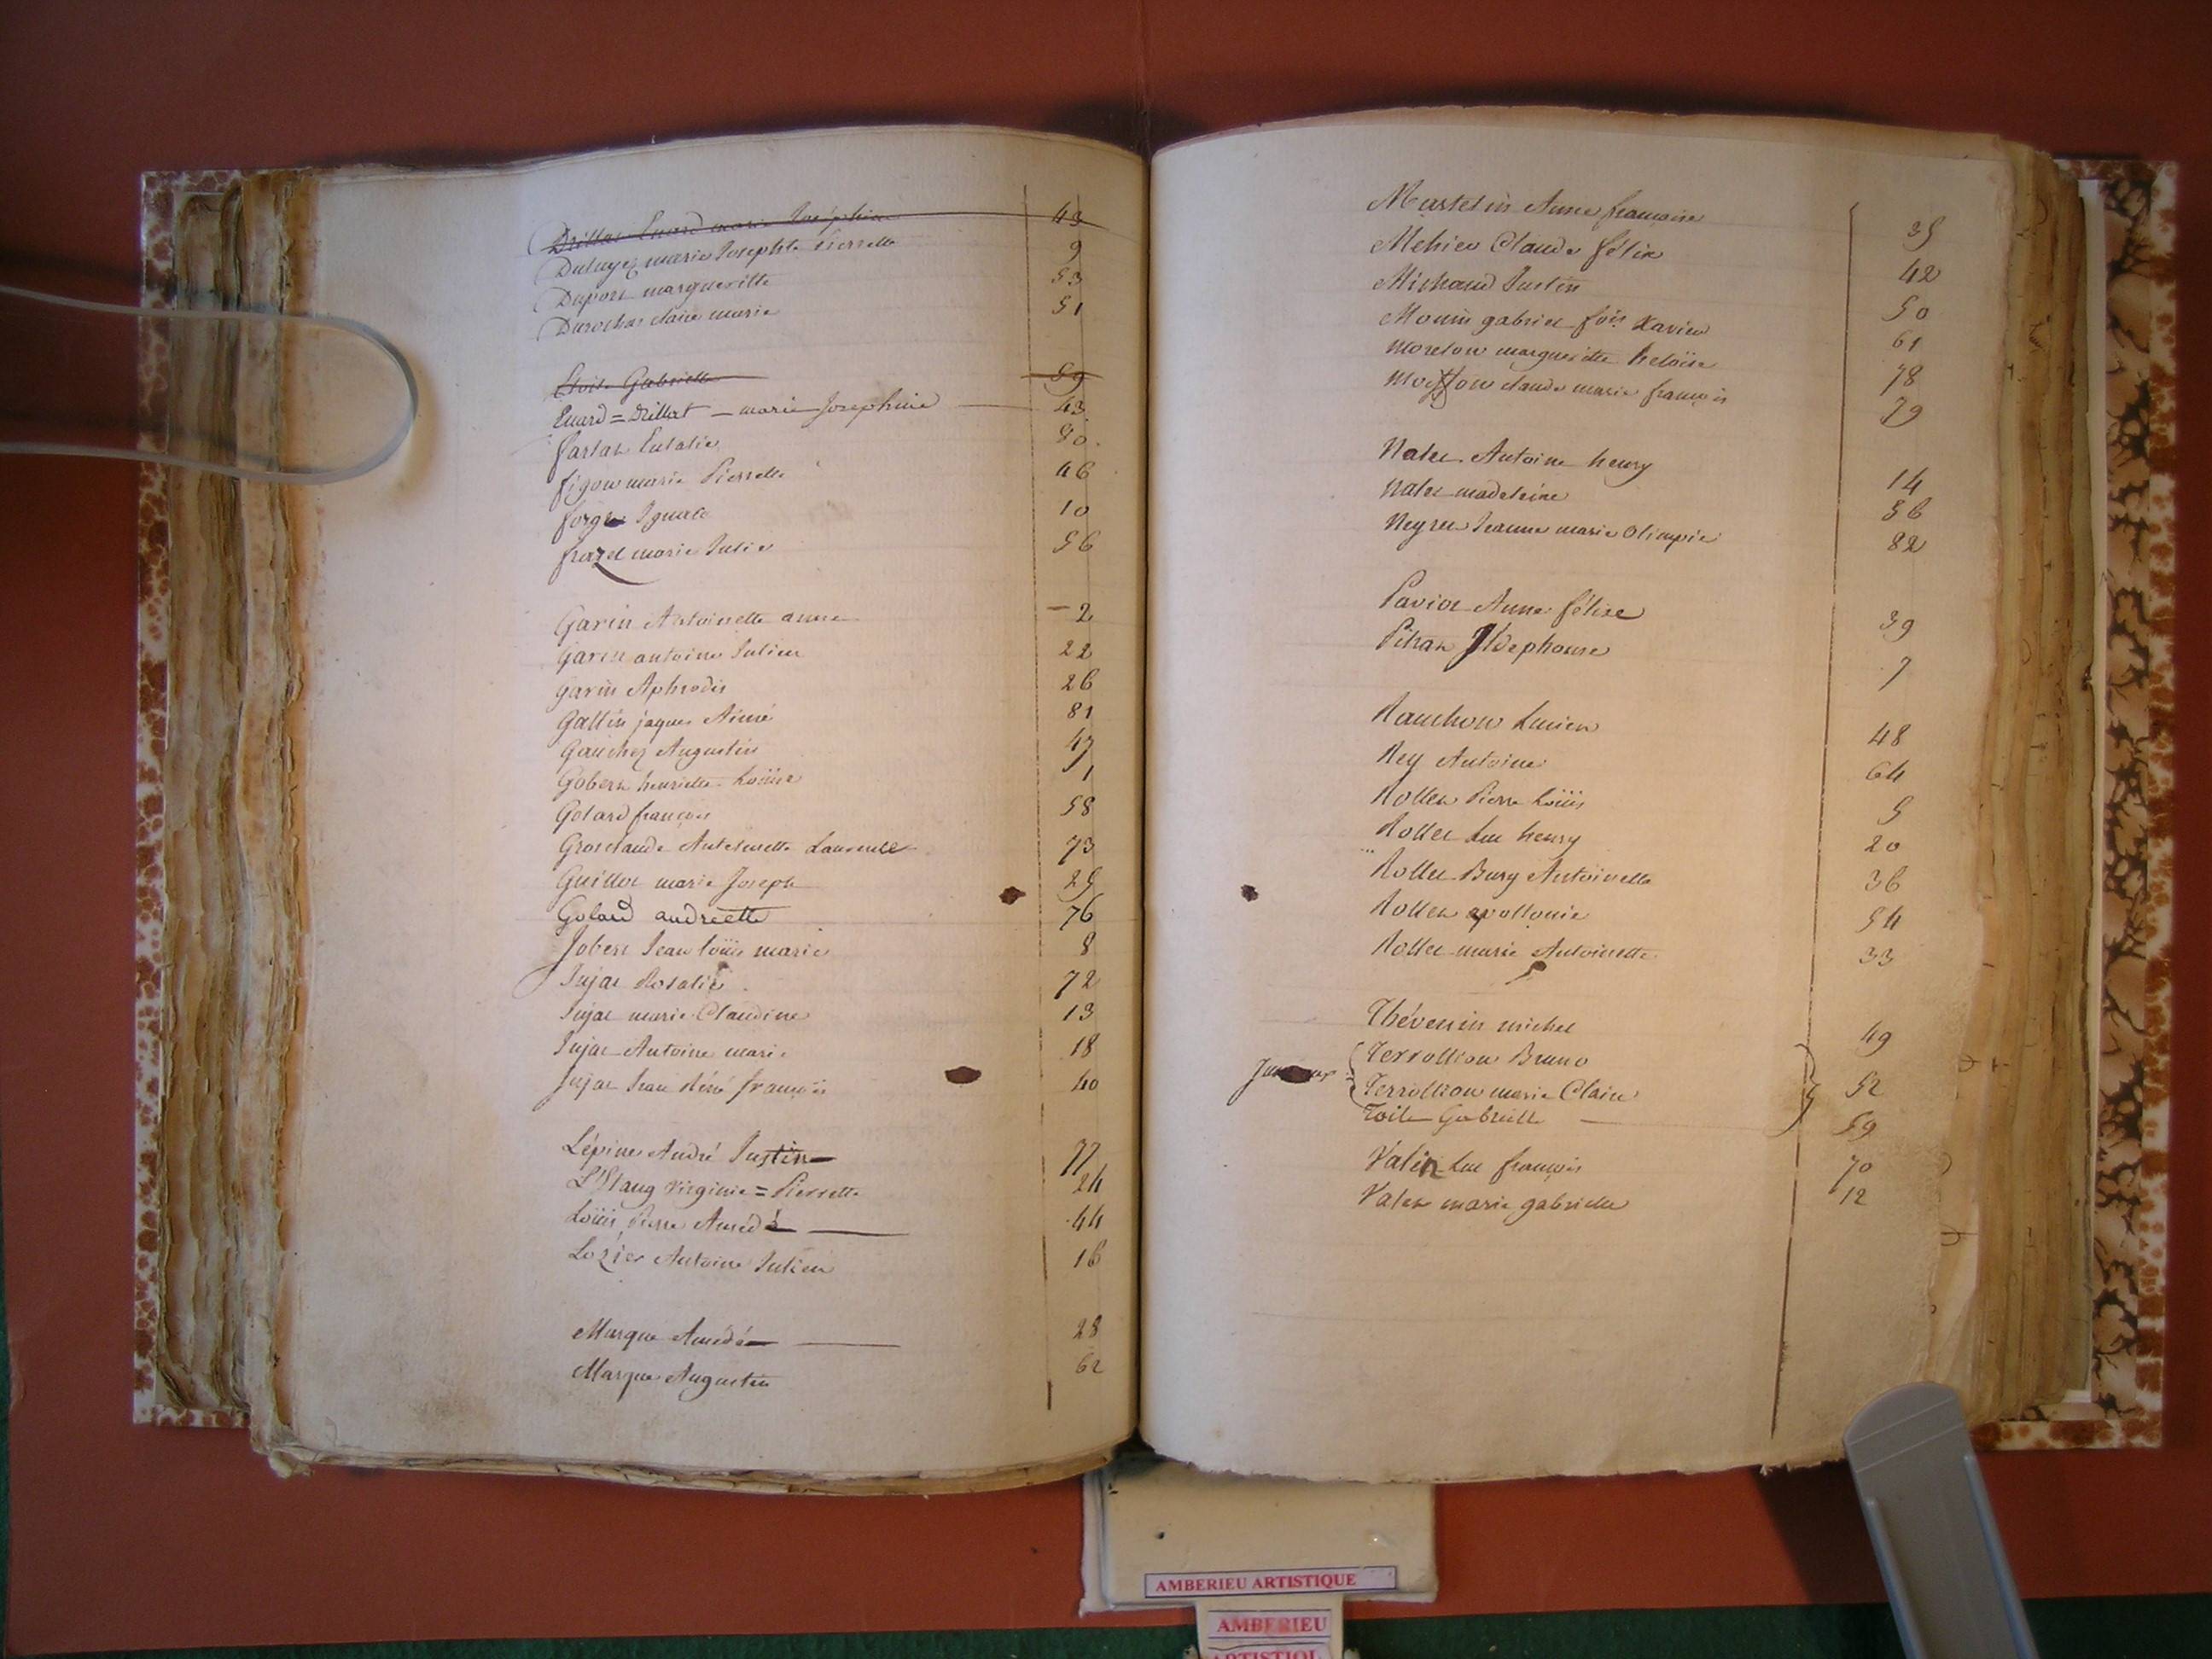 Drillat Enard marie Joséphine 43
marie Josephte Pierrette 9
Dupont margueritte 53
Durochat claire marie 51
Etoile Gabrielle 59
Enard = Drillat - marie Josephine 43
Eulalie 80
figon marie Pierrette 46
forge Ignace 10
frazet marie Julie 56
Garin Antoinette anne 2
Garin antoine Julien 22
Garin Aphrodis 26
Gallin jaques Aimé 81
Gauchez Augustin 47
Gobert henriette Louise 1
Golard françois 58
Grosclaude Antoinette Laurence 73
Guillot marie Joseph 25
Golard andriette 76
Jobert Jean louis marie 8
Jujat Rosalie 72
Jujat marie Claudine 13
Jujat Antoine marie 18
Jujat Jean Réné françois 40
Lépine André Justin 77
L'Etang Virginie = Pierrette 24
Louis Pierre Amédé 44
Lozier Antoine Julien 16
Marque Amédé 28
Marque Augustin 62
Martelin Anne françoise 35
Mehier Claude félix 42
Michaud Justin 50
Monin gabriel fois Xavier 61
Moreton margueritte heloïse 78
claude marie françois 79
Nalet Antoine henry 14
Nalet madeleine 86
Neyret Jeanne marie Olimpie 82
Paviot Anne félise 39
Pihan Ildephonse 7
Lucien 48
Rey Antoine 64
Rollet Pierre Louis 5
Rollet Luc henry 20
Rollet Bury Antoinette 36
Rollet apollonie 54
Rollet marie Antoinette 33
Thévenin michel 49
Terrollion Bruno
Jumeaux Terrollion marie Claire 52
Toile Gabrielle 59
Valin Luc françois 70
Valet marie gabrielle 12
AMBERIEU ARTISTIQUE
AMBERIEU